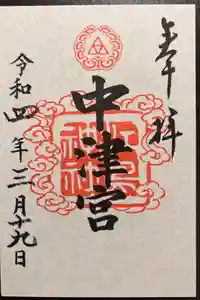 奉拝
中津宮
令和四年三月十九日